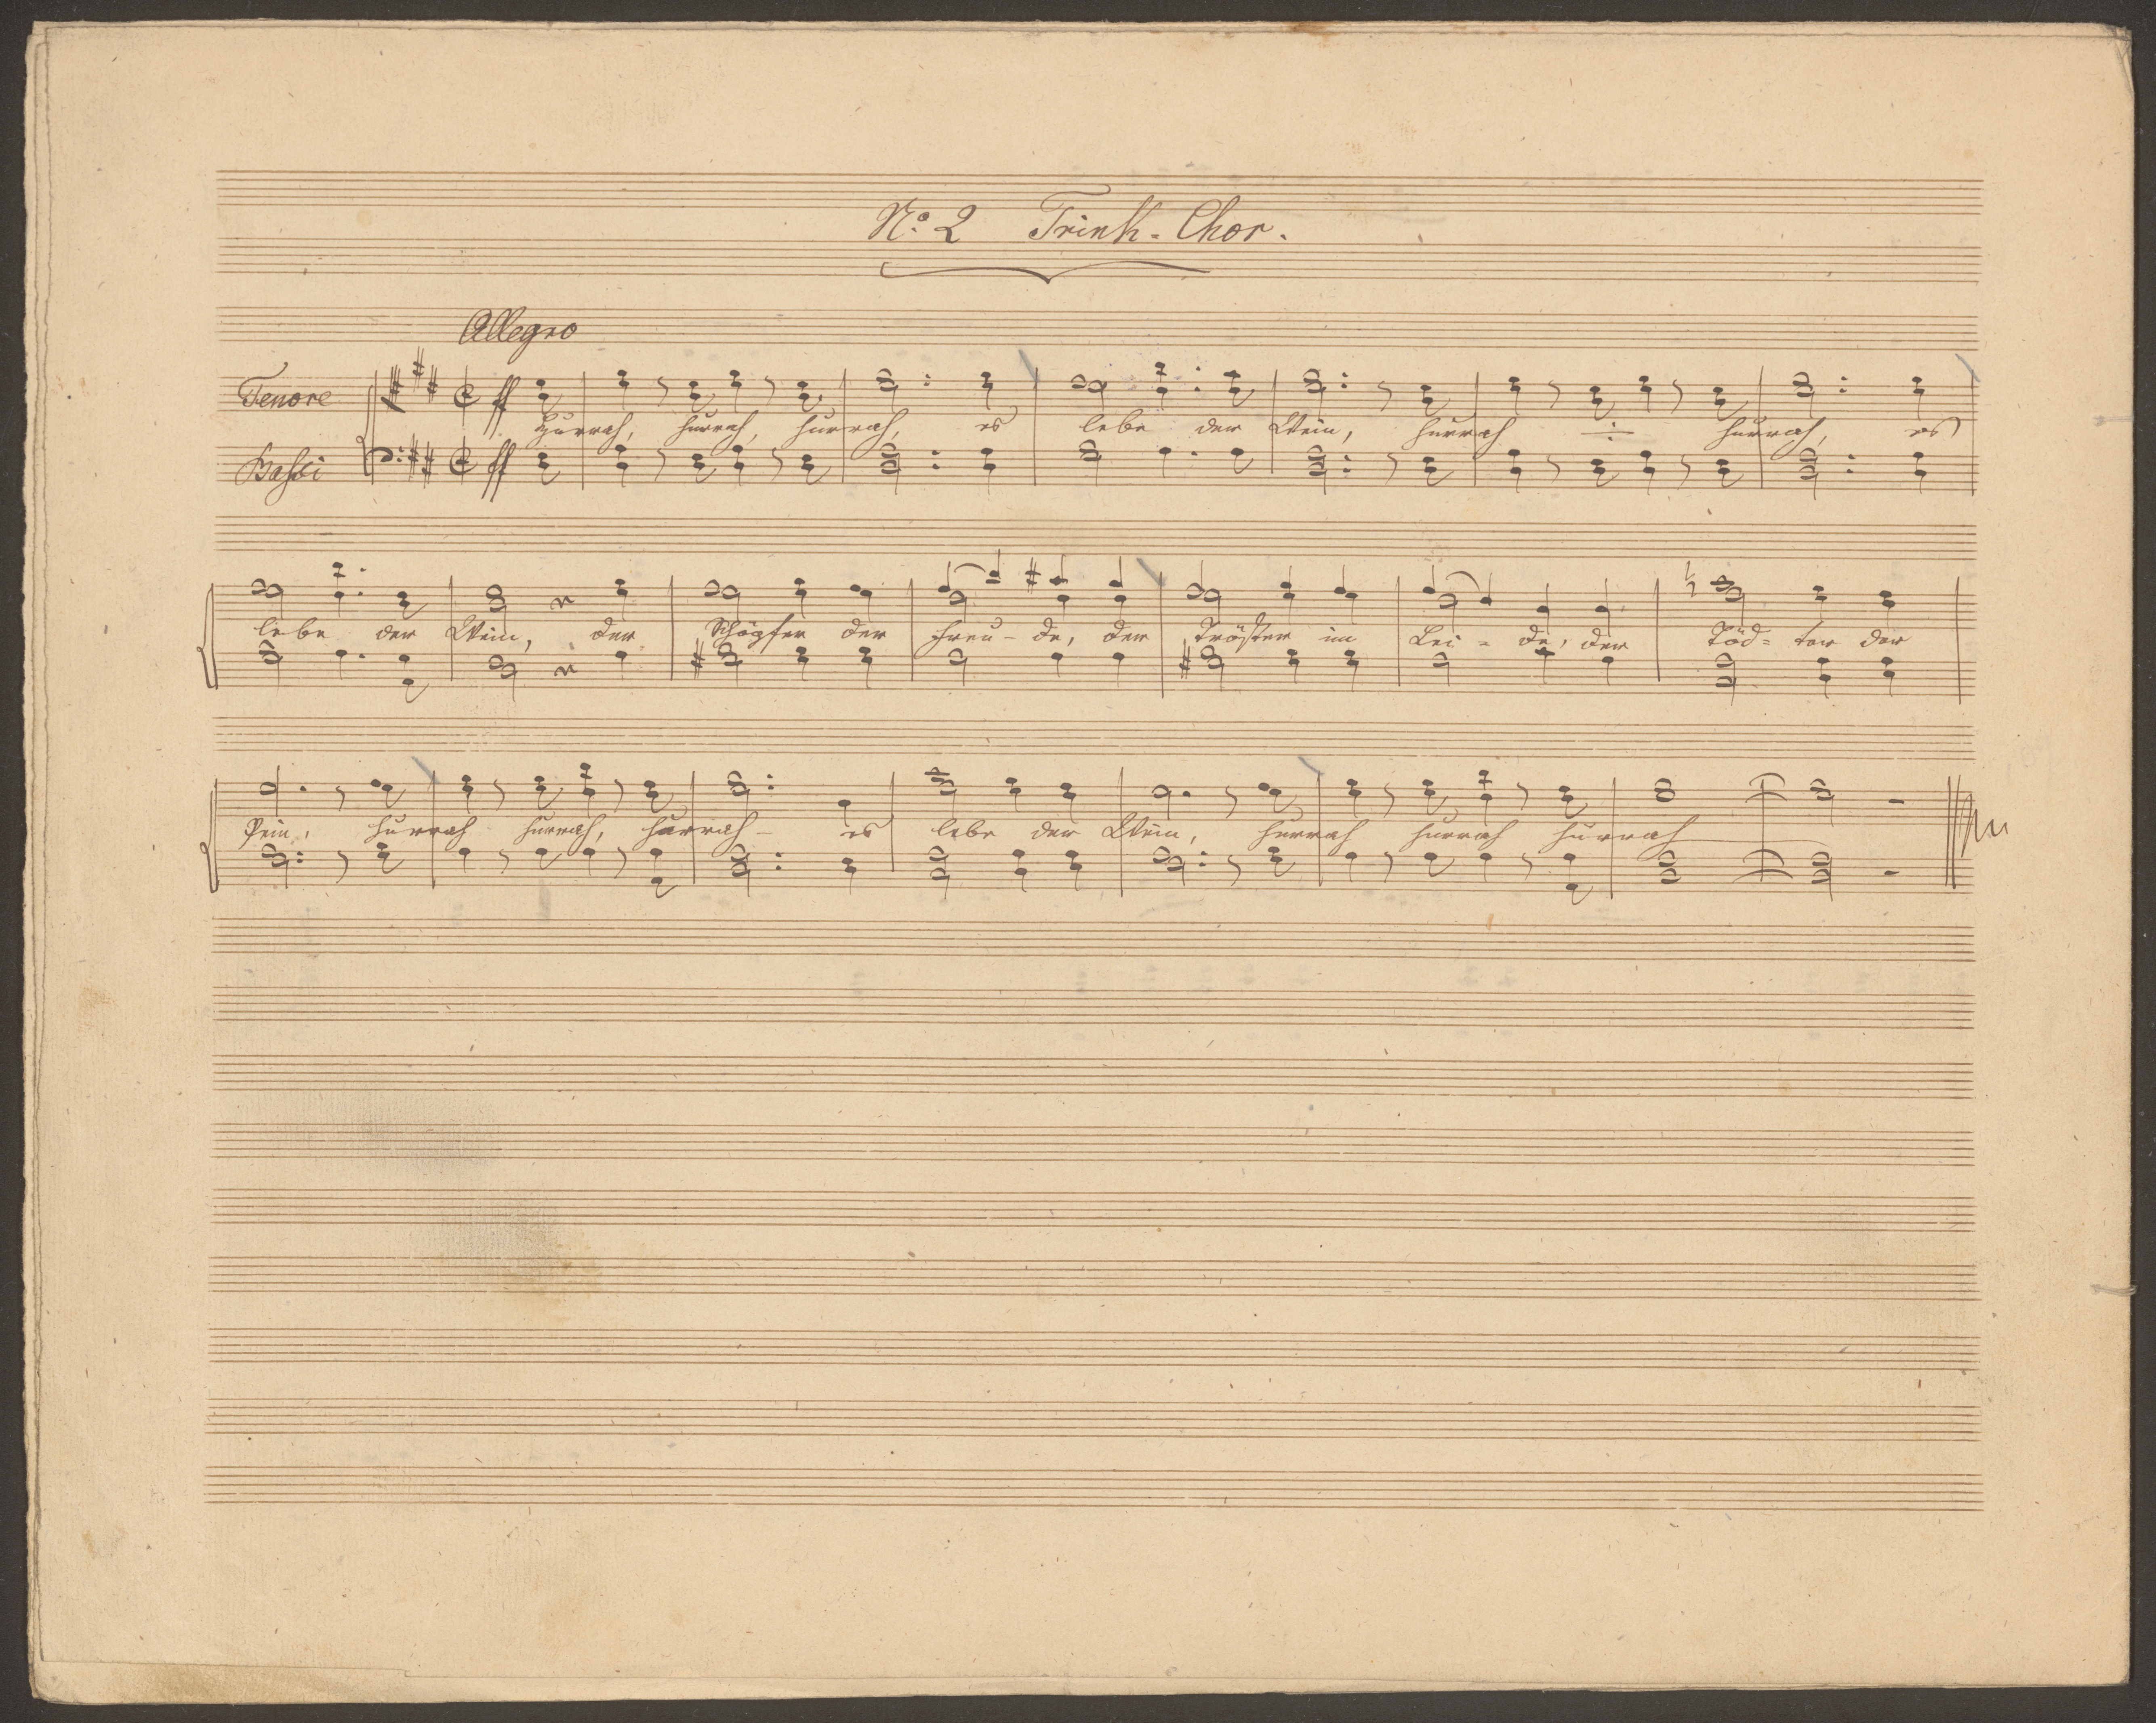 No. 2 Trink-Chor.
Allegro
Tenore
ff
Hurrah, hurrah, hurrah, es lebe der Wein, hurrah hurrah, es
Bassi
ff
lebe der Wein, der Schöpfer der Freu-de, der Tröster im Lei-de, der Töd-ter der
Pein, hurrah hurrah, hurrah- es lebe der Wein, hurrah hurrah hurrah